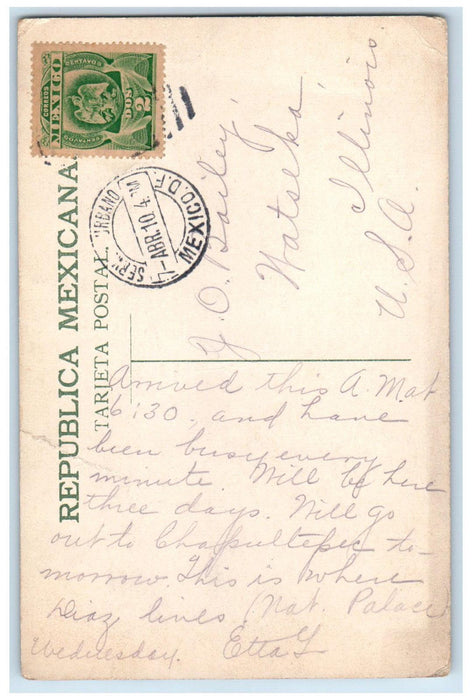 CORREOS
MEXICO
CENTAVOS
DOS
2
CENTAVOS
SERV. URBANO
7-ABR.10 4 M
MEXICO. D.F.
REPUBLICA MEXICANA
TARJETA POSTAL.
J. O. Bailey
Watseka
Illinois
U. S. A.
Arrived this A. M at
6:30. and have
been busy every
minute. Will be here
three days. Will go
out to Chapultepec to-
morrow. This is where
Diaz lives (Nat. Palace
Wednesday. Etta G